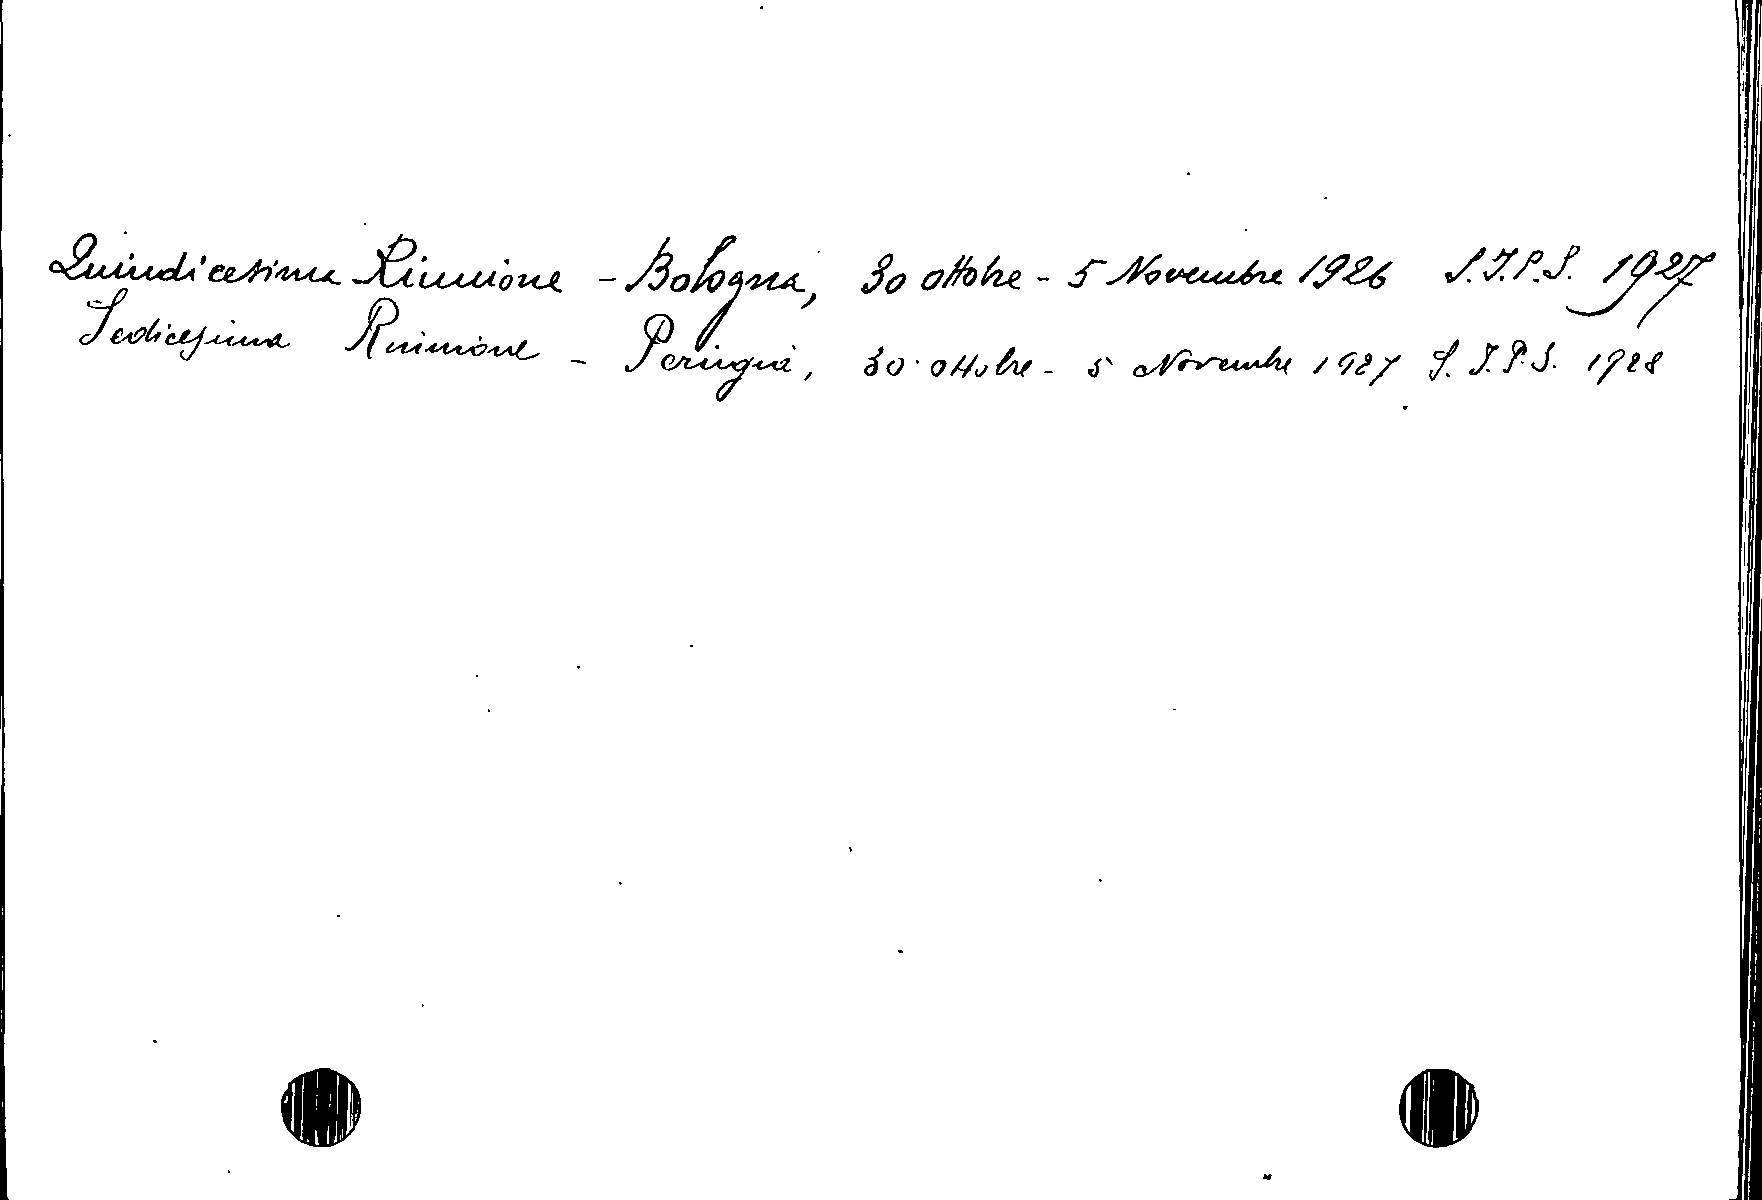 Quindicesima Riunione - Bologna, 30 ottobre - 5 Novembre 1926 S.I.P.S. 1927
Sedicesima Riunione - Perugia, 30 ottobre - 5 Novembre 1927 S.I.P.S. 1928